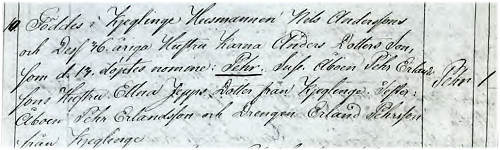 10. Föddes i Hjeglinge Husmannen Nils Anderssons
och Dess 36 åriga Hustru Karna Anders Dotters Son,
som d. 13. döptes nomine: Pehr. Susc. Åboen Pehr Erland-
sons Hustru Ellna Jepps Dotter från Hjeglinge. Testes:
Åboen Pehr Erlandsson och Drengen Erland Pehrsson
från Hjeglinge
Pehr 1